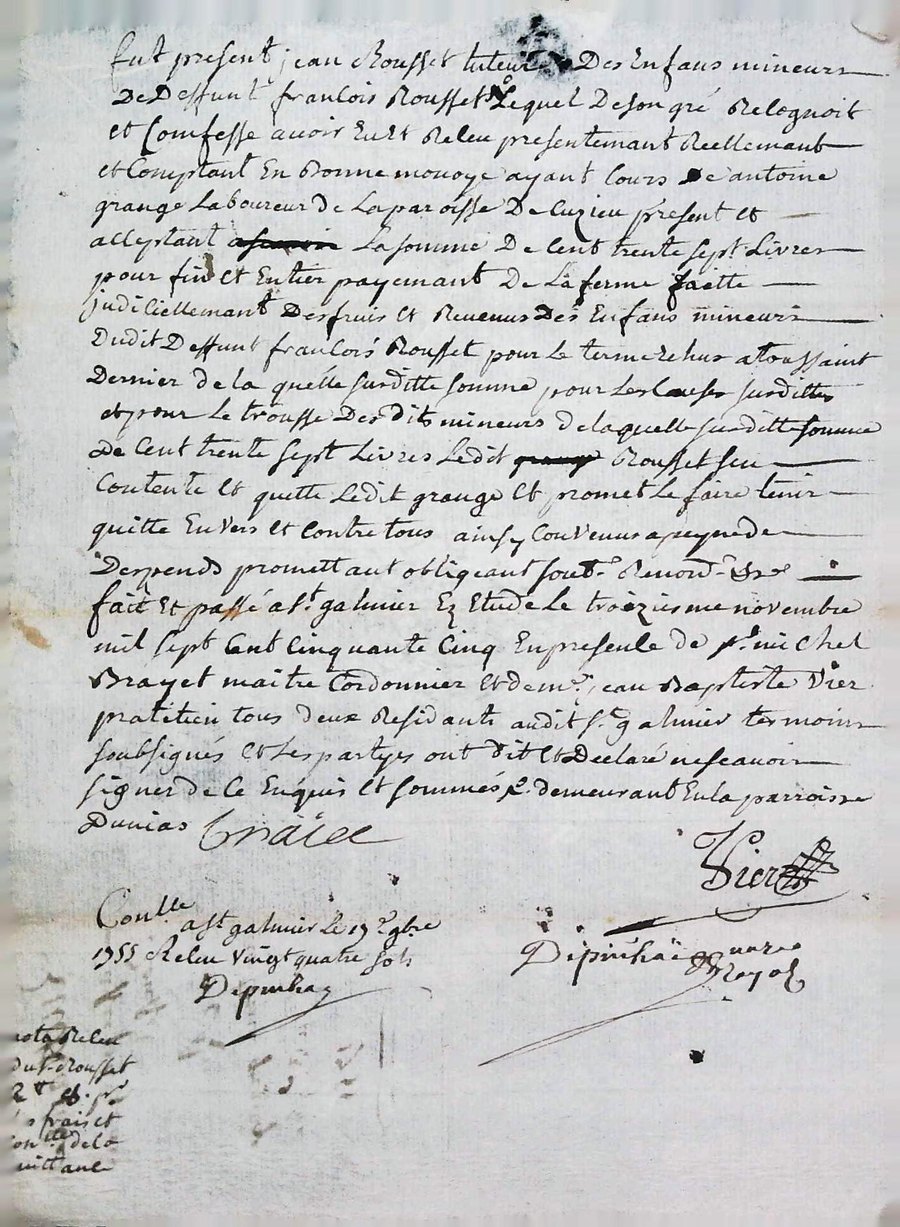 fut present jean Rousset tuteur Des Enfans mineurs
De Deffunt francois Rousset Lequel De son gré Recognoit
et Comfesse avoir Eu Et Receu presentemant Reellemant
et Comptant En Bonne monoye ayant Cours De antoine
grange Laboureur de La paroisse De Cuzieu present et
acceptant La somme De Cent trente sept Livres
pour fin Et Entier payemant De La ferme faitte
judiciellemant Des fruis et Revenus Des Enfans mineurs
Dudit Deffunt francois Rousset pour Le terme Echus a toussaint
Dernier de la quelle surditte somme pour Les Causes surdittes
et pour Le trousse Des dits mineurs de laquelle surditte somme
De Cent trente sept Livres Ledit Rousset seu
Contente Et quitte Ledit grange Et promet Le faire tenir
quitte Envers et Contre tous ainsy Convenus a peyne de
Despends promettant obligeant soub. Renon. &ce
fait Et passé a St galmier Ez Etude Le troiziesme novembre
mil sept Cent Cinquante Cinq En presence de Sr michel
Brayet maitre Cordonnier Et de mr jean Baptiste Vier
praticien tous deux Residants audit St galmier tesmoins
soubsignés Et Les partyes ont dit Et Declaré ne scavoir
signer de Ce Enquis Et sommés demeurant En la parroisse
Dunias
Vier
Conlle a St galmier Le 13e 9bre
1755 Receu vingt quatre sols
Depinhac
Depinhac
nore
Royal
nota Receu
dud. Rousset
frais et
de la
quittance